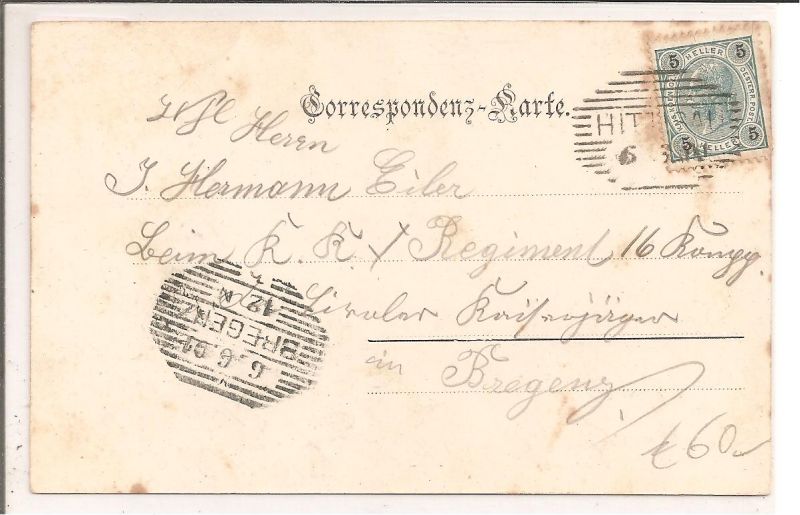 Correspondenz-Karte.
5 HELLER 5
5 HELLER 5
HITT
6
Herrn
J. Hermann Eiler
Beim K. K. Regiment 16 Komp.
Tiroler Kaiserjäger
in Bregenz
BREGENZ
6.6.01
12.N
60